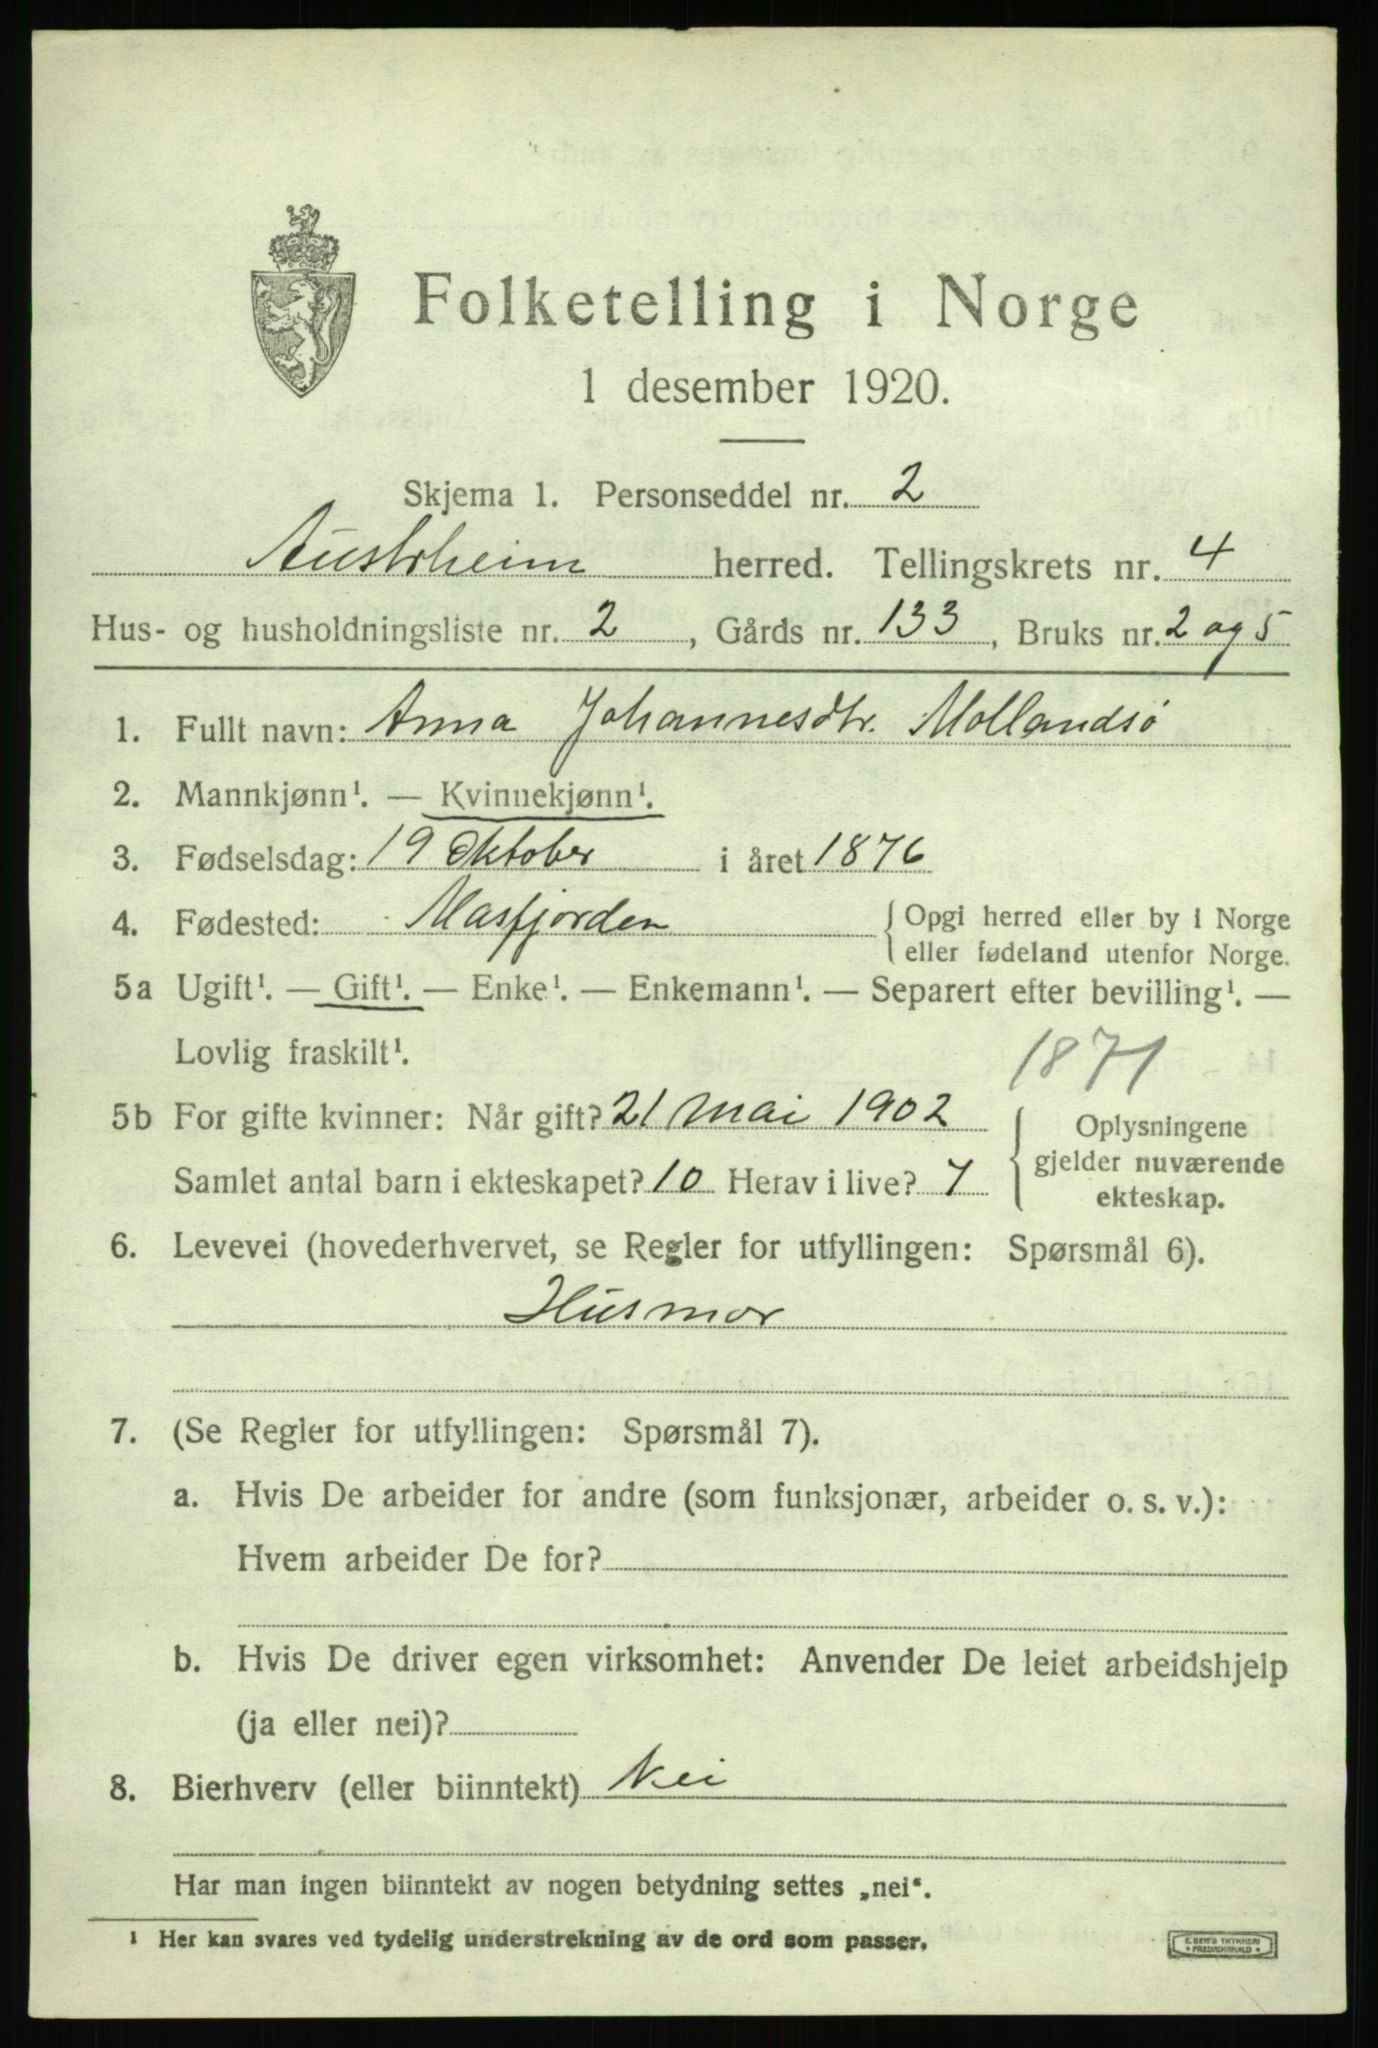 Folketelling i Norge
1 desember 1920.
Skjema 1. Personseddel nr. 2
Austrheim herred. Tellingskrets nr. 4
Hus- og husholdningsliste nr. 2, Gårds nr. 133, Bruks nr. 2 og 5
1. Fullt navn: Anna Johannesdtr. Mollandsö
2. Mannkjønn¹. — Kvinnekjønn¹.
3. Fødselsdag: 19 Oktober i året 1876
4. Fødested: Masfjorden { Opgi herred eller by i Norge
eller fødeland utenfor Norge.
5a Ugift¹. — Gift¹. — Enke¹. — Enkemann¹. — Separert efter bevilling¹. —
Lovlig fraskilt¹.
1871
5b For gifte kvinner: Når gift? 21 mai 1902
Samlet antal barn i ekteskapet? 10 Herav i live? 7
{ Oplysningene
gjelder nuværende
ekteskap.
6. Levevei (hovederhvervet, se Regler for utfyllingen: Spørsmål 6).
Husmor
7. (Se Regler for utfyllingen: Spørsmål 7).
a. Hvis De arbeider for andre (som funksjonær, arbeider o. s. v.):
Hvem arbeider De for?
b. Hvis De driver egen virksomhet: Anvender De leiet arbeidshjelp
(ja eller nei)?
8. Bierhverv (eller biinntekt) Nei
Har man ingen biinntekt av nogen betydning settes „nei“.
¹ Her kan svares ved tydelig understrekning av de ord som passer.